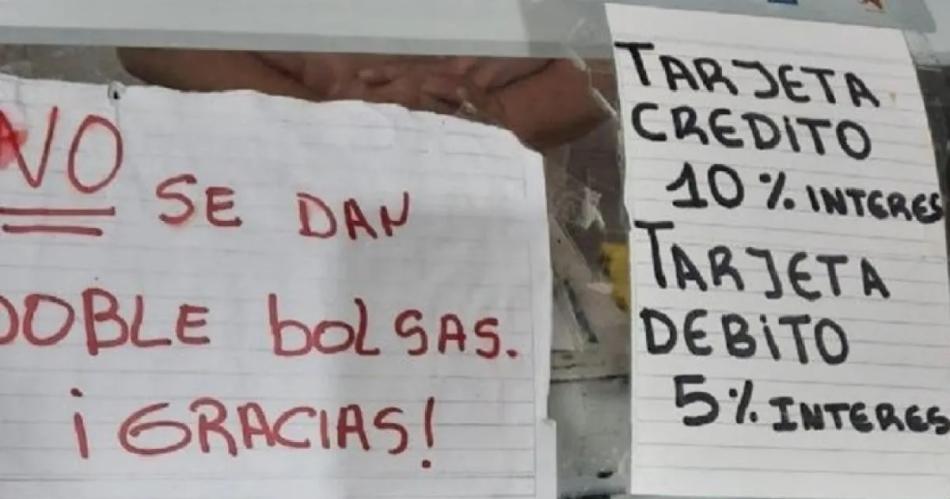 NO SE DAN
DOBLE bolSAS.
¡GRACIAS!
TARJETA
CREDITO
10% INTERES
TARJETA
DEBiTO
5% INTERES